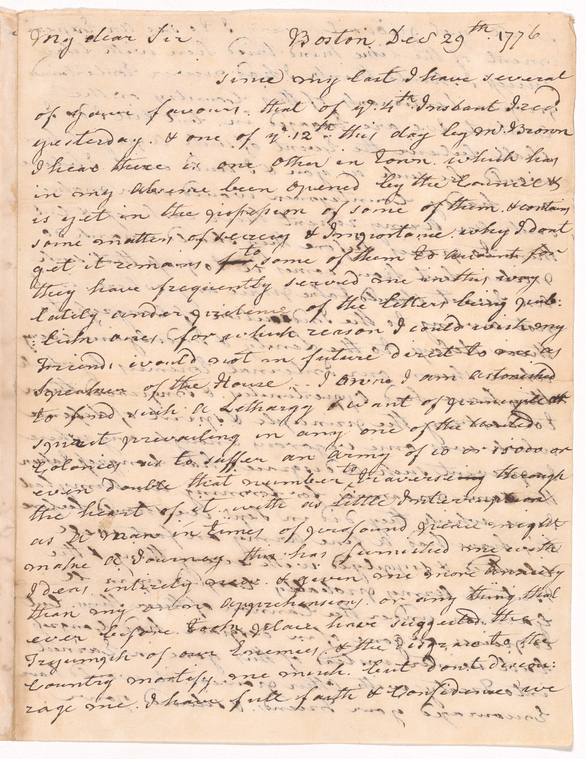 My dear Sir. Boston Decr 29th 1776
Since my last I have several
of your favours. that of ye. 4th Instant Irecd.
yesterday. & one of ye. 12th this day by Mr Brown
I hear there is one other in Town. which has
in my absence been opened by the Council &
is yet in the possession of some of them. & contains
some matters of secrecy & Importance why I dont
get it remains for to some of them to account for
they have frequently served me in this way
lately, under pretence of the letters being pub:
:lick ones. for which reason I could wish my
Friends would not in future direct to me as
Speaker of the House. I own I am astonished
to find such a Lethargy & want of
spirit prevailing in any one of the United
Colonies as to suffer an Army of 10 or 15000 or
even double that number, to Traversing through
the heart of it with as little Interruption
as a man in times of profound peace might
make a Journey. this has furnished me with
Ideas intirely new. & given me more Anxiety
than my own apprehensions. or any thing that
ever before took place have suggested. the
Tryumph of our Enemies & the Disgrace to the
Country mortify me much. but dont discou:
rage me. I have full faith & Confidence we